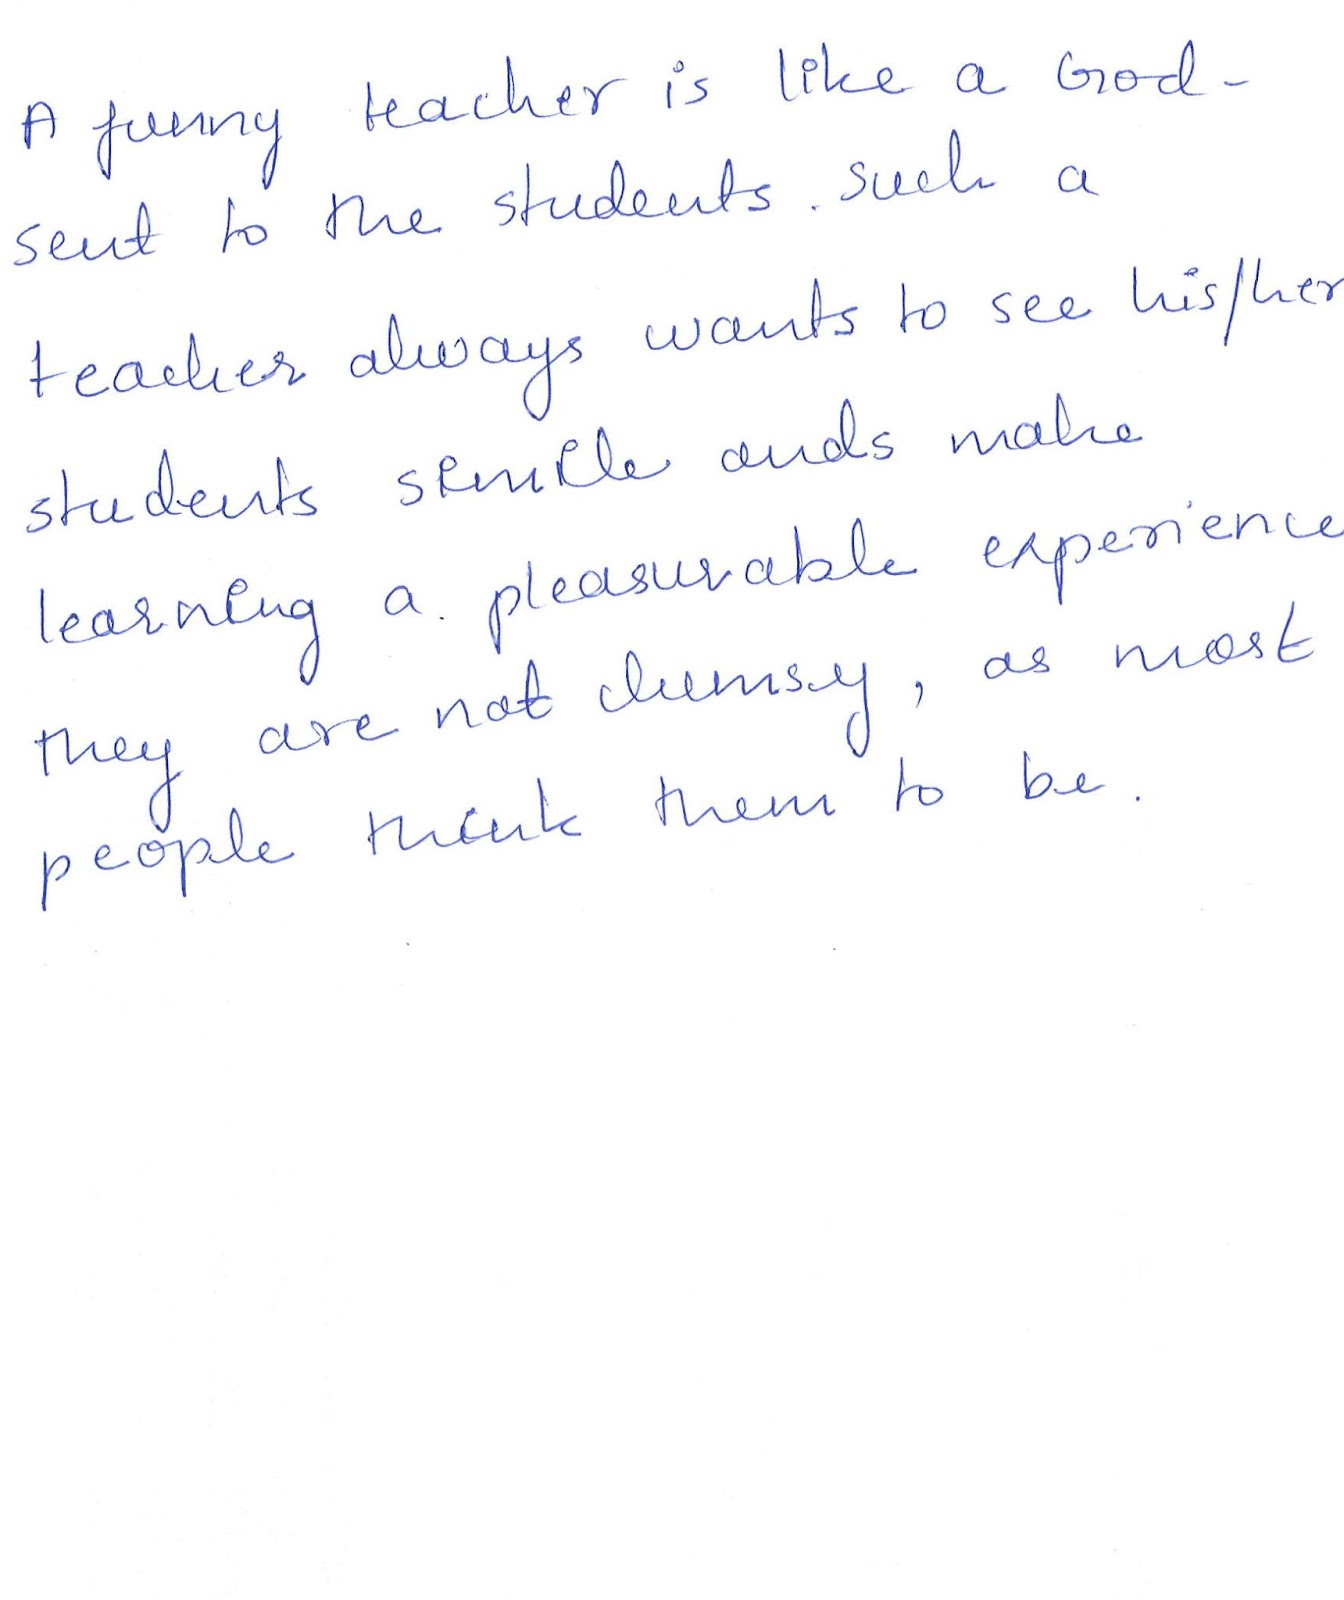 A funny teacher is like a God-
sent to the students. such a
teacher always wants to see his/her
students smile ands make
learning a pleasurable experience
they are not clumsy, as most
people think them to be.